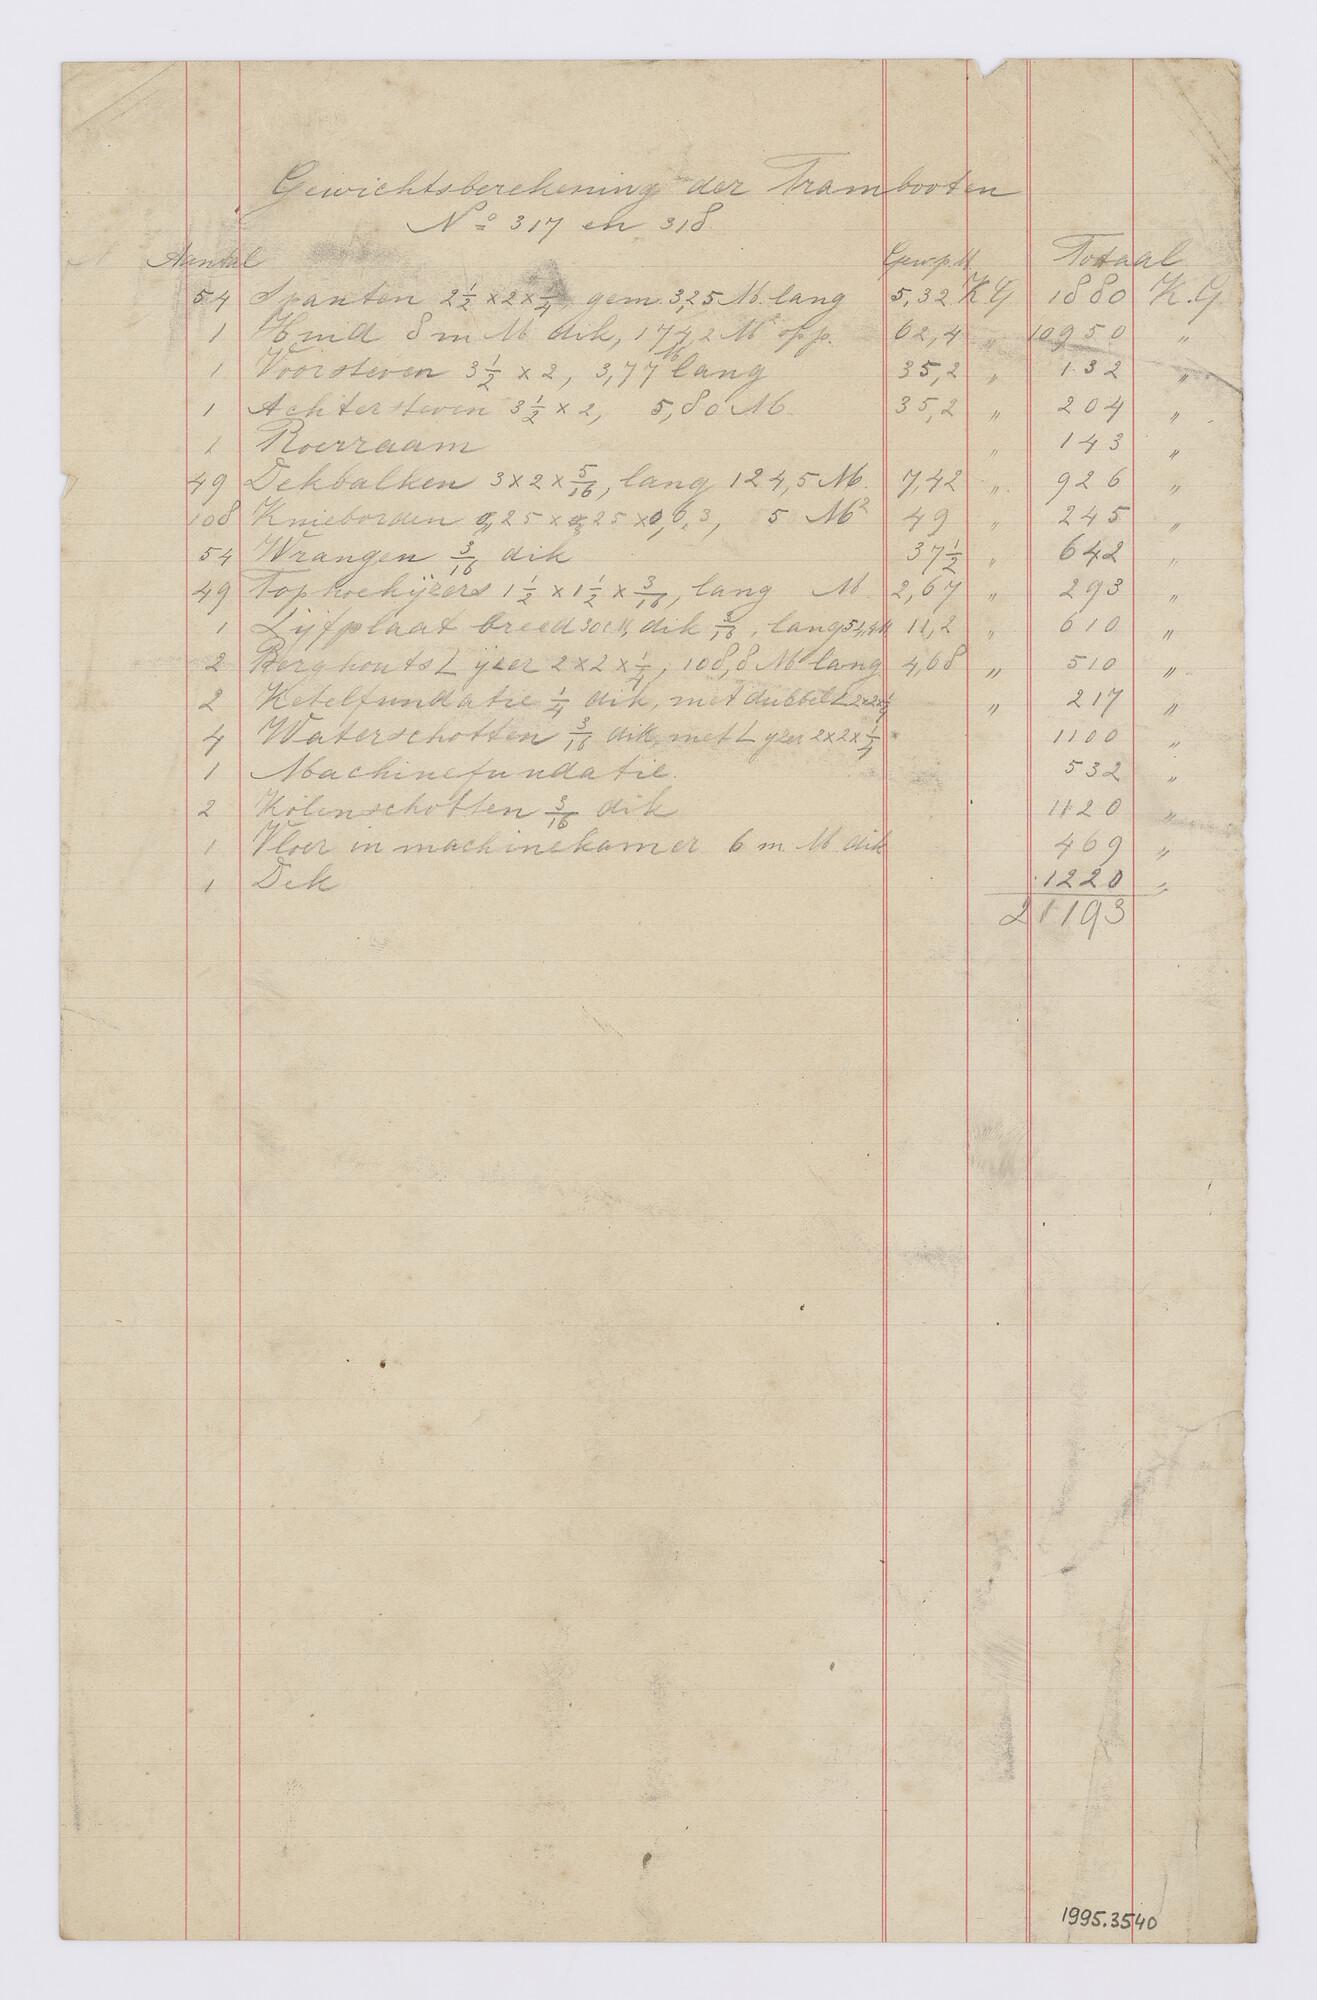 Gewichtsberekening der Trambooten
Nº 317 en 318
Aantal Gew. p. M Totaal
54 Spanten 2 1/2 × 2 × 1/4, gem. 3,25 M. lang 5,32 KG 1880 K.G
1 Huid 8 m M dik, 174,2 M² opp. 62,4 " 10950 "
1 Voorsteven 3 1/2 × 2, 3,77 M lang 35,2 " 132 "
1 Achtersteven 3 1/2 × 2, 5,80 M. 35,2 " 204 "
1 Roerraam " 143 "
49 Dekbalken 3 × 2 × 5/16, lang 124,5 M. 7,42 " 926 "
108 Knieborden 0,25 × 0,25 × 0,6,3, 5 M² 49 " 245 "
54 Wrangen 3/16 dik 37 1/2 " 642 "
49 Tophoekijzers 1 1/2 × 1 1/2 × 3/16, lang M 2,67 " 293 "
1 Lijfplaat breed 30 cM, dik 3/16, lang 54,4 M 11,2 " 610 "
2 Berghouts L ijzer 2 × 2 × 1/4, 108,8 M lang 4,68 " 510 "
2 Ketelfundatie 1/4 dik, met dubbel L 2×2×1/4 " 217 "
4 Waterschotten 3/16 dik, met L ijzer 2×2×1/4 1100 "
1 Machinefundatie. 532 "
2 Kolenschotten 3/16 dik 1120 "
1 Vloer in machinekamer 6 m M dik 469 "
1 Dek 1220 "
21193
1995.3540